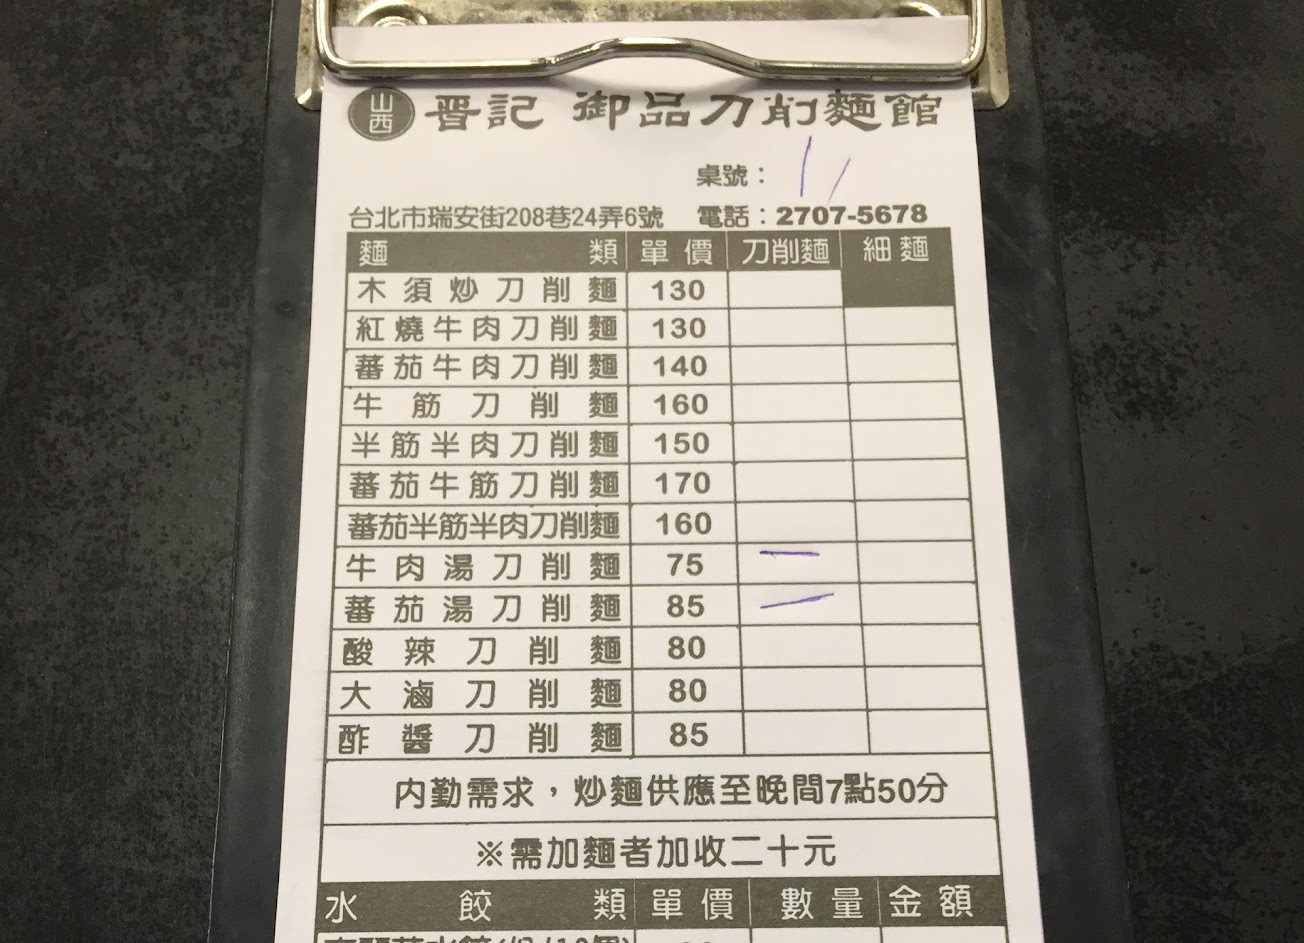 山西 晋記 御品刀削麵館
桌號： 11
台北市瑞安街208巷24弄6號 電話：2707-5678
麵類 單價 刀削麵 細麵
木須炒刀削麵 130
紅燒牛肉刀削麵 130
蕃茄牛肉刀削麵 140
牛筋刀削麵 160
半筋半肉刀削麵 150
蕃茄牛筋刀削麵 170
蕃茄半筋半肉刀削麵 160
牛肉湯刀削麵 75 一
蕃茄湯刀削麵 85 一
酸辣刀削麵 80
大滷刀削麵 80
酢醬刀削麵 85
內勤需求，炒麵供應至晚間7點50分
※需加麵者加收二十元
水餃類 單價 數量 金額